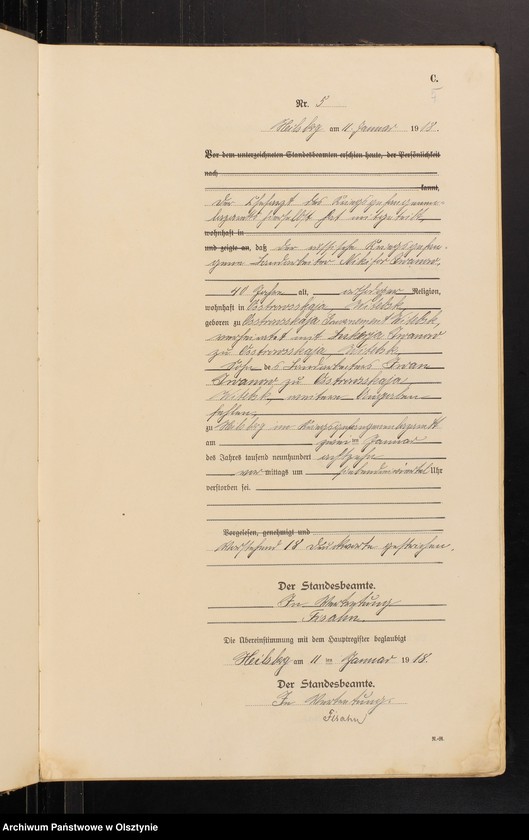 C.
Nr. 5
Heilsbg am 11. Januar 1918.
Vor dem unterzeichneten Standesbeamten erschien heute, der Persönlichkeit
nach
kannt,
Der Chefarzt des Kriegsgefangenen-
lazaretts hierselbst hat mitgeteilt,
wohnhaft in
und zeigte an, daß der russische Kriegsgefan-
gene Landarbeiter Nikifor Iwanow,
40 Jahre alt, Religion,
wohnhaft in Ostrowskaja, Witebsk,
geboren zu Ostrowskaja Gouvernement Witebsk,
verheiratet mit Iwanow
zu Ostrowskaja, Witebsk
Sohn des Landarbeiters Iwan
Iwanow zu Ostrowskaja,
Witebsk, weitere Angaben
fehlen,
zu Heilsbg im Kriegsgefangenenlazarett
am zwei ten Januar
des Jahres tausend neunhundert achtzehn
vor mittags um sieben Uhr
verstorben sei.
Vorgelesen, genehmigt und
Vorstehend 18 Druckworte gestrichen.
Der Standesbeamte.
In Vertretung
Fisahn.
Die Übereinstimmung mit dem Hauptregister beglaubigt
Heilsbg am 11 ten Januar 1918.
Der Standesbeamte.
In Vertretung.
Fisahn
Archiwum Państwowe w Olsztynie